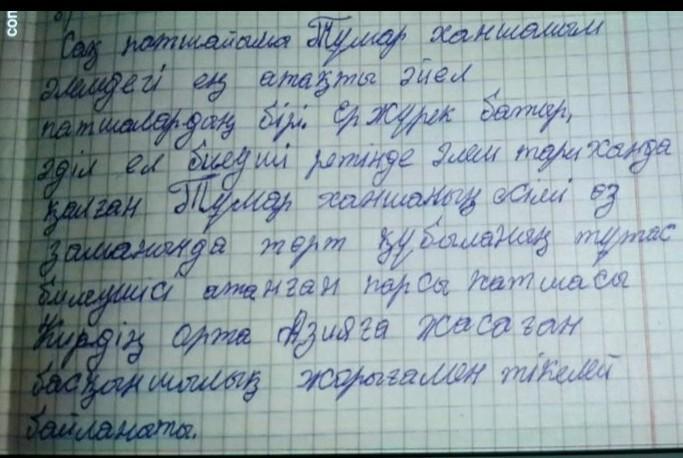 con
Сақ патшайыма Тумар ханшамым
әлемдегі ең атақты әйел
патшалардаң бірі. Ержүрек батыр,
әділ ел билеуші ретінде әлем тарихында
қалған Тұмар ханшаның есімі өз
заманында төрт құбыланың тұтас
билеушісі атанған парсы патшасы
Кирдің Орта Азияға жасаған
басқыншылық жорығамен тікелей
байланаты.